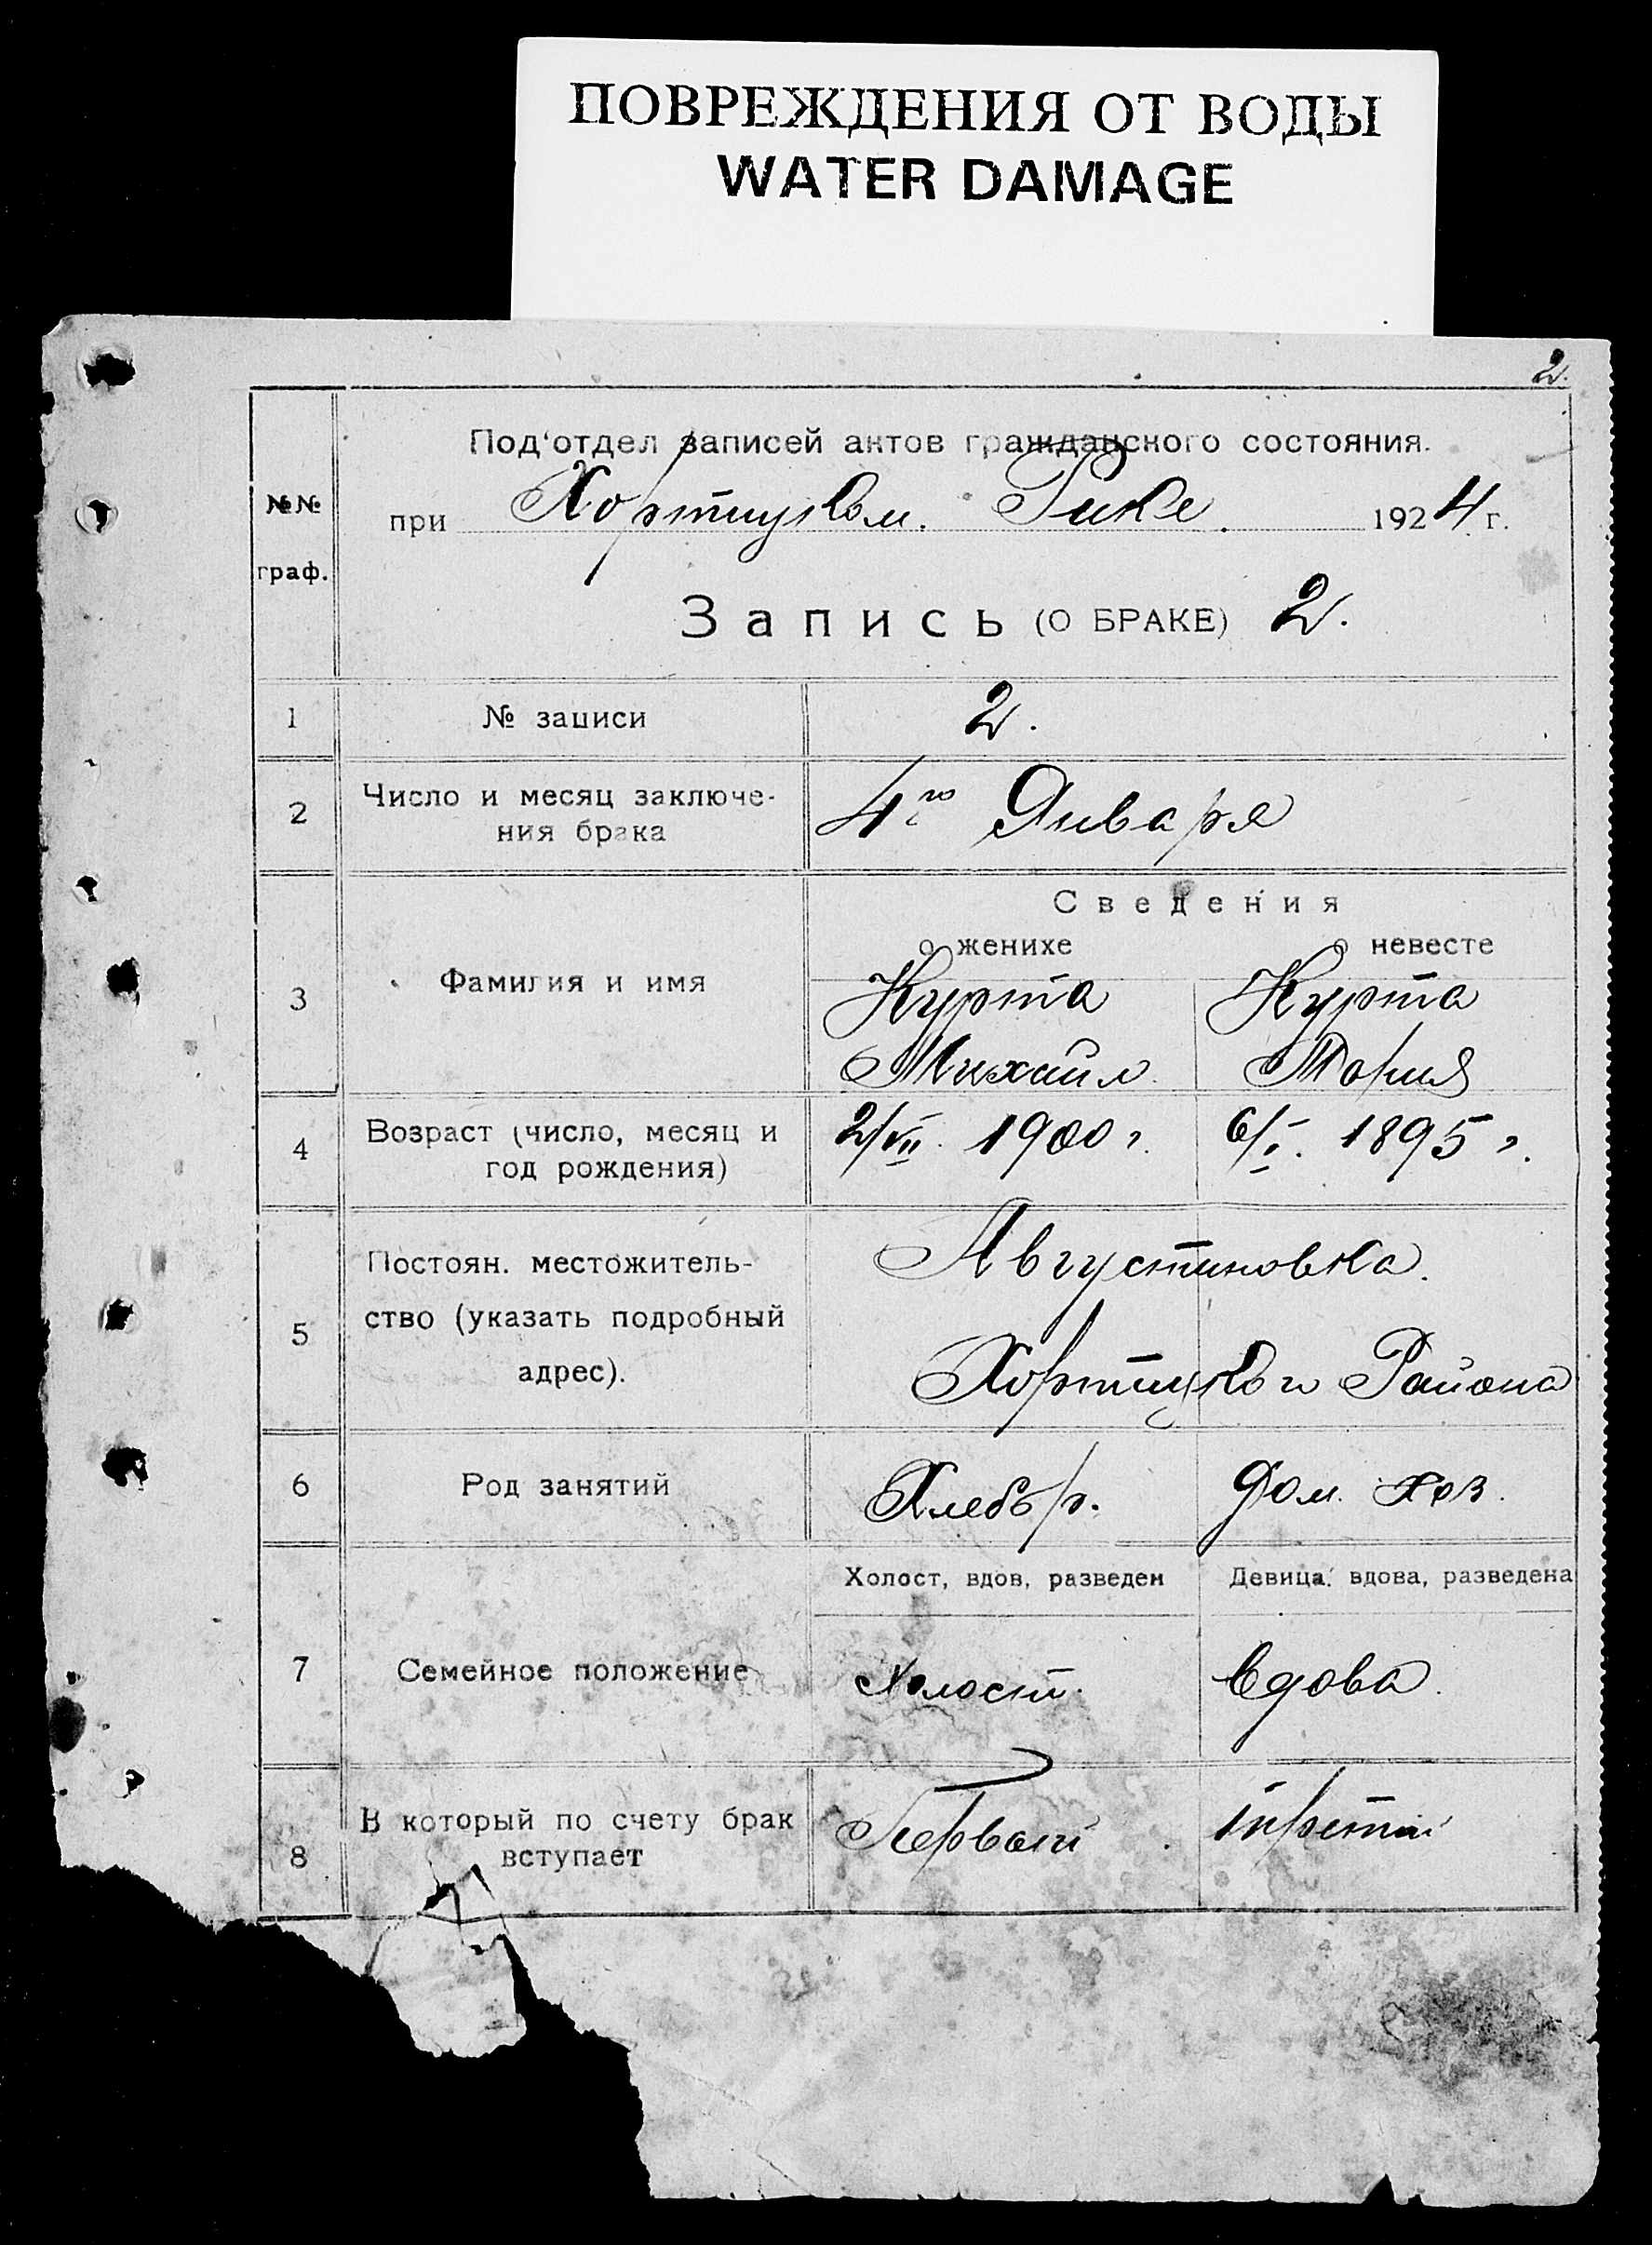 ПОВРЕЖДЕНИЯ ОТ ВОДЫ
WATER DAMAGE
2.
Под'отдел записей актов гражданского состояния.
№№ граф.
при Хортицком. Рике. 1924 г.
Запись (О БРАКЕ) 2.
1 № записи 2.
2 Число и месяц заключе-
ния брака
4го Января
Сведения
о женихе о невесте
3 Фамилия и имя
Курта Курта
Михаил Мария
4 Возраст (число, месяц и
год рождения)
2/VII. 1900 г. 6/I. 1895 г.
5 Постоян. местожитель-
ство (указать подробный
адрес).
Августиновка.
Хортицков Района
6 Род занятий Хлебор. Дом. хоз.
Холост, вдов, разведен Девица, вдова, разведена
7 Семейное положение Холост. Вдова.
8 В который по счету брак
вступает
Первый третий